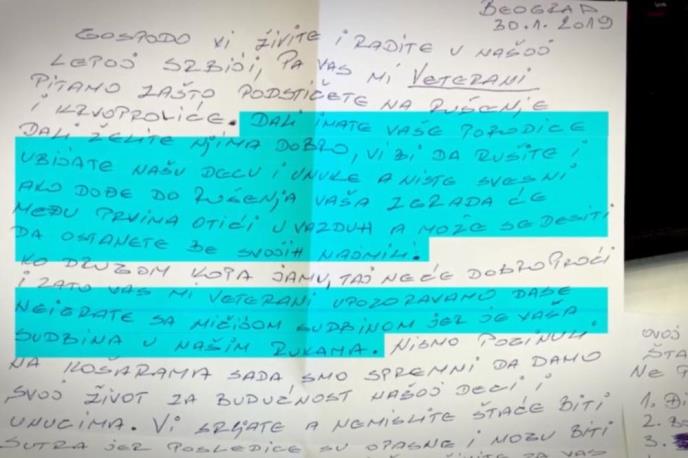 BEOGRAD
30.1.2019
GOSPODO VI ŽIVITE I RADITE U NAŠOJ
LEPOJ SRBIJI, PA VAS MI VETERANI
PITAMO ZAŠTO PODSTIČETE NA RUŠENJE
I KRVOPROLIĆE. DALI IMATE VAŠE PORODICE
DALI ŽELITE NJIMA DOBRO, VI BI DA RUŠITE I
UBIJATE NAŠU DECU I UNUKE A NISTE SVESNI
AKO DOĐE DO RUŠENJA VAŠA ZGRADA ĆE
MEĐU PRVIMA OTIĆI U VAZDUH A MOŽE SE DESITI
DA OSTANETE BE SVOJIH NAJMILI.
KO DRUGOM KOPA JAMU, TAJ NEĆE DOBRO PROĆI
I ZATO VAS MI VETERANI UPOZORAVAMO DA SE
NEIGRATE SA NIČIJOM SUDBINOM JER JE VAŠA
SUDBINA U NAŠIM RUKAMA. NISMO POGINULI
NA KOŠARAMA SADA SMO SPREMNI DA DAMO
SVOJ ŽIVOT ZA BUDUĆNOST NAŠOJ DECI I
UNUCIMA. VI SRLJATE A NEMISLITE ŠTAĆE BITI
SUTRA JER POSLEDICE SU OPASNE I MOGU BITI
ZA VAS
OVOJ
ŠTA
NE P
1. Di
2. Bo
3.